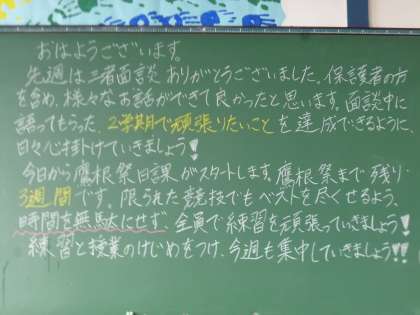 おはようございます。
先週は三者面談ありがとうございました。保護者の方
を含め、様々なお話ができて良かったと思います。面談中に
語ってもらった、2学期で頑張りたいことを達成できるように
日々心掛けていきましょう!
今日から鷹根祭日課がスタートします。鷹根祭まで残り
3週間です。限られた競技でもベストを尽くせるよう、
時間を無駄にせず、全員で練習を頑張っていきましょう!
練習と授業のけじめをつけ、今週も集中していきましょう!!